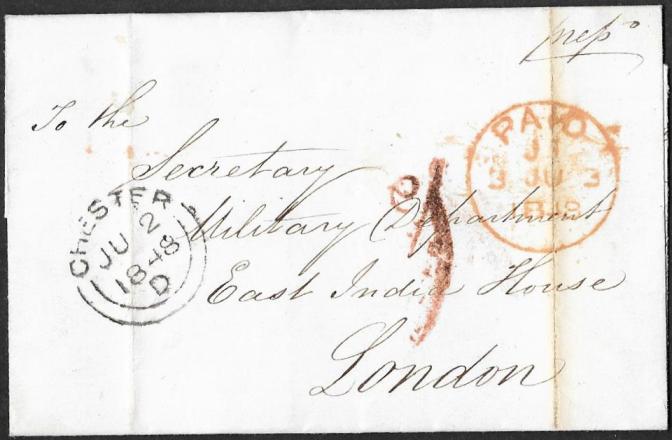 To the
Secretary
Military Department
East India House
London
CHESTER
JU 2
1848
D
PAID
J
3 JU 3
1848